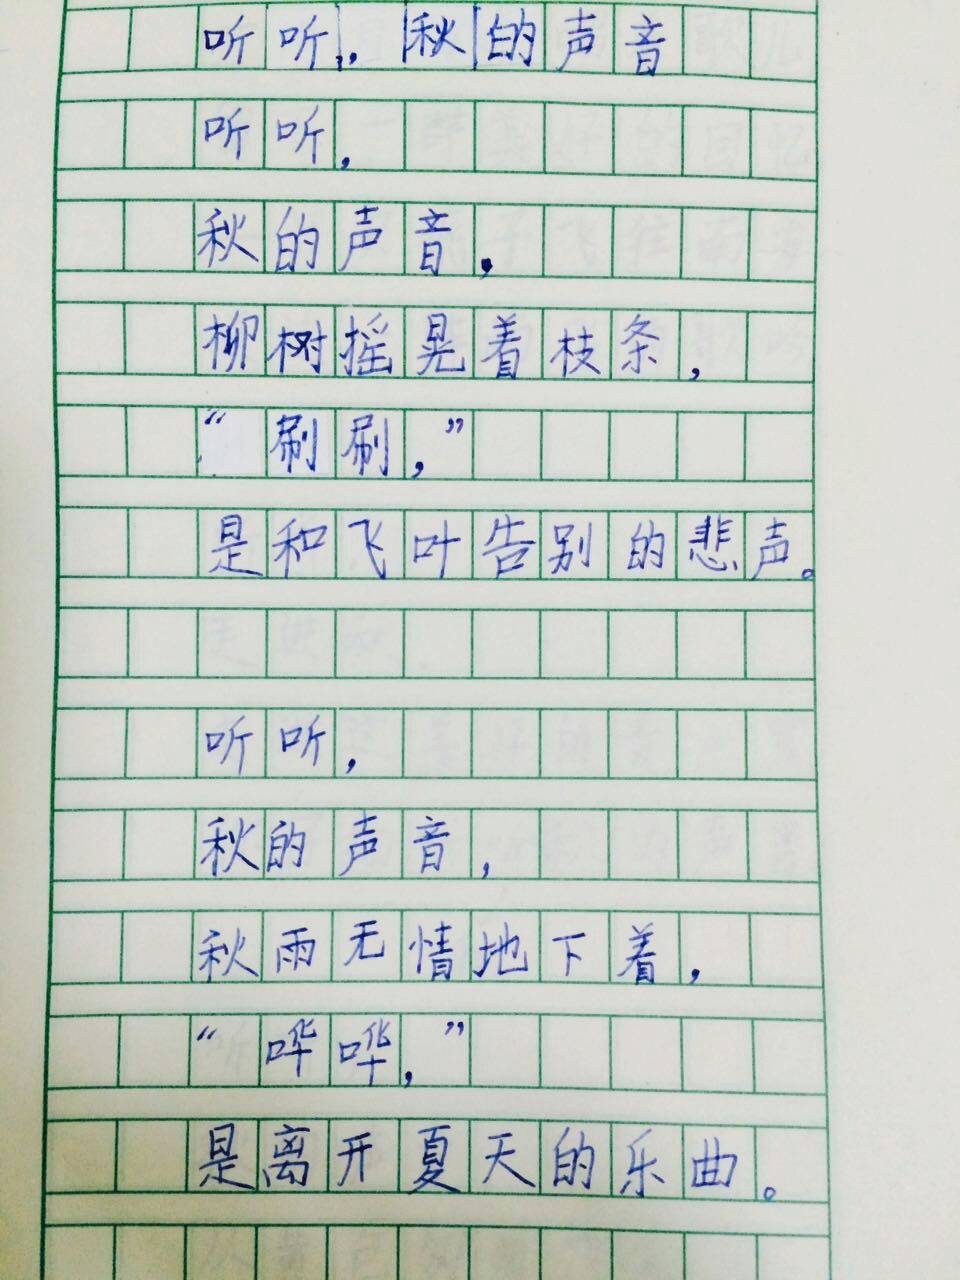 听听，秋的声音
听听，
秋的声音，
柳树摇晃着枝条，
“刷刷，”
是和飞叶告别的悲声。
听听，
秋的声音，
秋雨无情地下着，
“哗哗，”
是离开夏天的乐曲。